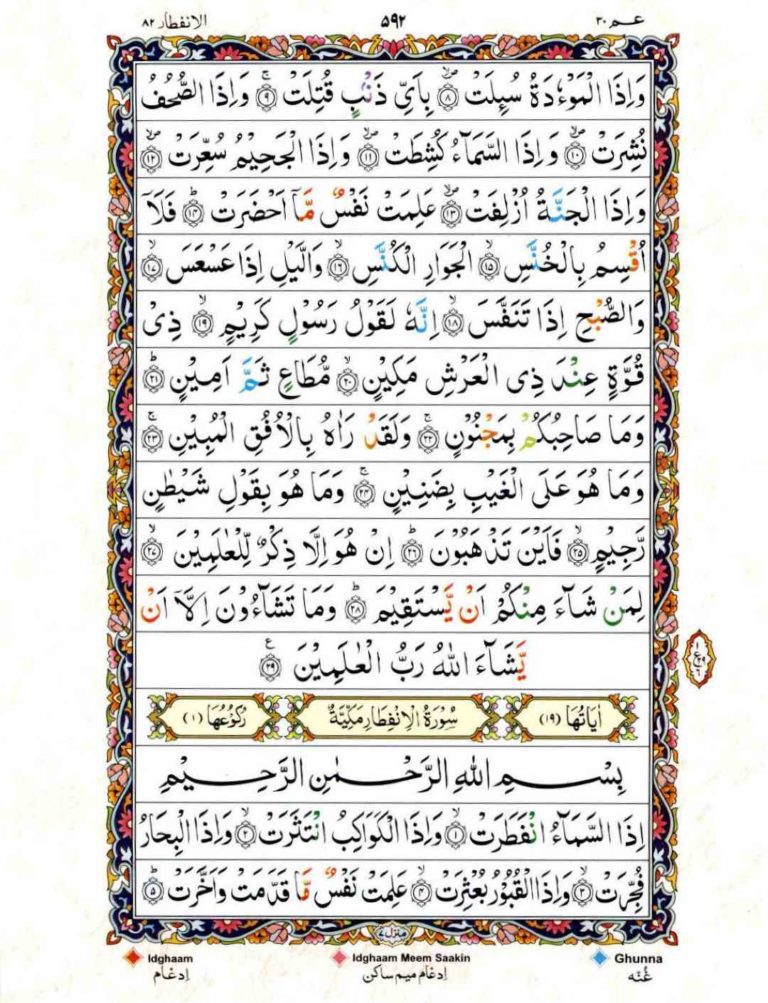 عم ٣٠ ٥٩٢ الانفطار ٨٢
وَاِذَا الْمَوْءٗدَةُ سُىِٕلَتْ ۪ۙ﴿۸﴾ بِاَیِّ ذَنْۢبٍ قُتِلَتْ ۚ﴿۹﴾ وَاِذَا الصُّحُفُ
نُشِرَتْ ۪ۙ﴿۱۰﴾ وَاِذَا السَّمَآءُ كُشِطَتْ ۪ۙ﴿۱۱﴾ وَاِذَا الْجَحِیْمُ سُعِّرَتْ ۪ۙ﴿۱۲﴾
وَاِذَا الْجَنَّةُ اُزْلِفَتْ ۪ۙ﴿۱۳﴾ عَلِمَتْ نَفْسٌ مَّاۤ اَحْضَرَتْ ؕ﴿۱۴﴾ فَلَاۤ
اُقْسِمُ بِالْخُنَّسِ ۙ﴿۱۵﴾ الْجَوَارِ الْكُنَّسِ ۙ﴿۱۶﴾ وَالَّیْلِ اِذَا عَسْعَسَ ۙ﴿۱۷﴾
وَالصُّبْحِ اِذَا تَنَفَّسَ ۙ﴿۱۸﴾ اِنَّهٗ لَقَوْلُ رَسُوْلٍ كَرِیْمٍ ۙ﴿۱۹﴾ ذِیْ
قُوَّةٍ عِنْدَ ذِی الْعَرْشِ مَكِیْنٍ ۙ﴿۲۰﴾ مُّطَاعٍ ثَمَّ اَمِیْنٍ ؕ﴿۲۱﴾
وَمَا صَاحِبُكُمْ بِمَجْنُوْنٍ ۚ﴿۲۲﴾ وَلَقَدْ رَاٰهُ بِالْاُفُقِ الْمُبِیْنِ ۚ﴿۲۳﴾
وَمَا هُوَ عَلَی الْغَیْبِ بِضَنِیْنٍ ۚ﴿۲۴﴾ وَمَا هُوَ بِقَوْلِ شَیْطٰنٍ
رَّجِیْمٍ ۙ﴿۲۵﴾ فَاَیْنَ تَذْهَبُوْنَ ؕ﴿۲۶﴾ اِنْ هُوَ اِلَّا ذِكْرٌ لِّلْعٰلَمِیْنَ ۙ﴿۲۷﴾
لِمَنْ شَآءَ مِنْكُمْ اَنْ یَّسْتَقِیْمَ ؕ﴿۲۸﴾ وَمَا تَشَآءُوْنَ اِلَّاۤ اَنْ
یَّشَآءَ اللّٰهُ رَبُّ الْعٰلَمِیْنَ ﴿۲۹﴾ ع
اٰیَاتُهَا (۱۹) سُوْرَةُ الْاِنْفِطَارِ مَكِّیَّةٌ رُكُوْعُهَا (۱)
بِسْمِ اللّٰهِ الرَّحْمٰنِ الرَّحِیْمِ
اِذَا السَّمَآءُ انْفَطَرَتْ ۙ﴿۱﴾ وَاِذَا الْكَوَاكِبُ انْتَثَرَتْ ۙ﴿۲﴾ وَاِذَا الْبِحَارُ
فُجِّرَتْ ۙ﴿۳﴾ وَاِذَا الْقُبُوْرُ بُعْثِرَتْ ۙ﴿۴﴾ عَلِمَتْ نَفْسٌ مَّا قَدَّمَتْ وَاَخَّرَتْ ؕ﴿۵﴾
منزل ۷
Idghaam Idghaam Meem Saakin Ghunna
اِدغام اِدغام میم ساکن غُنّه